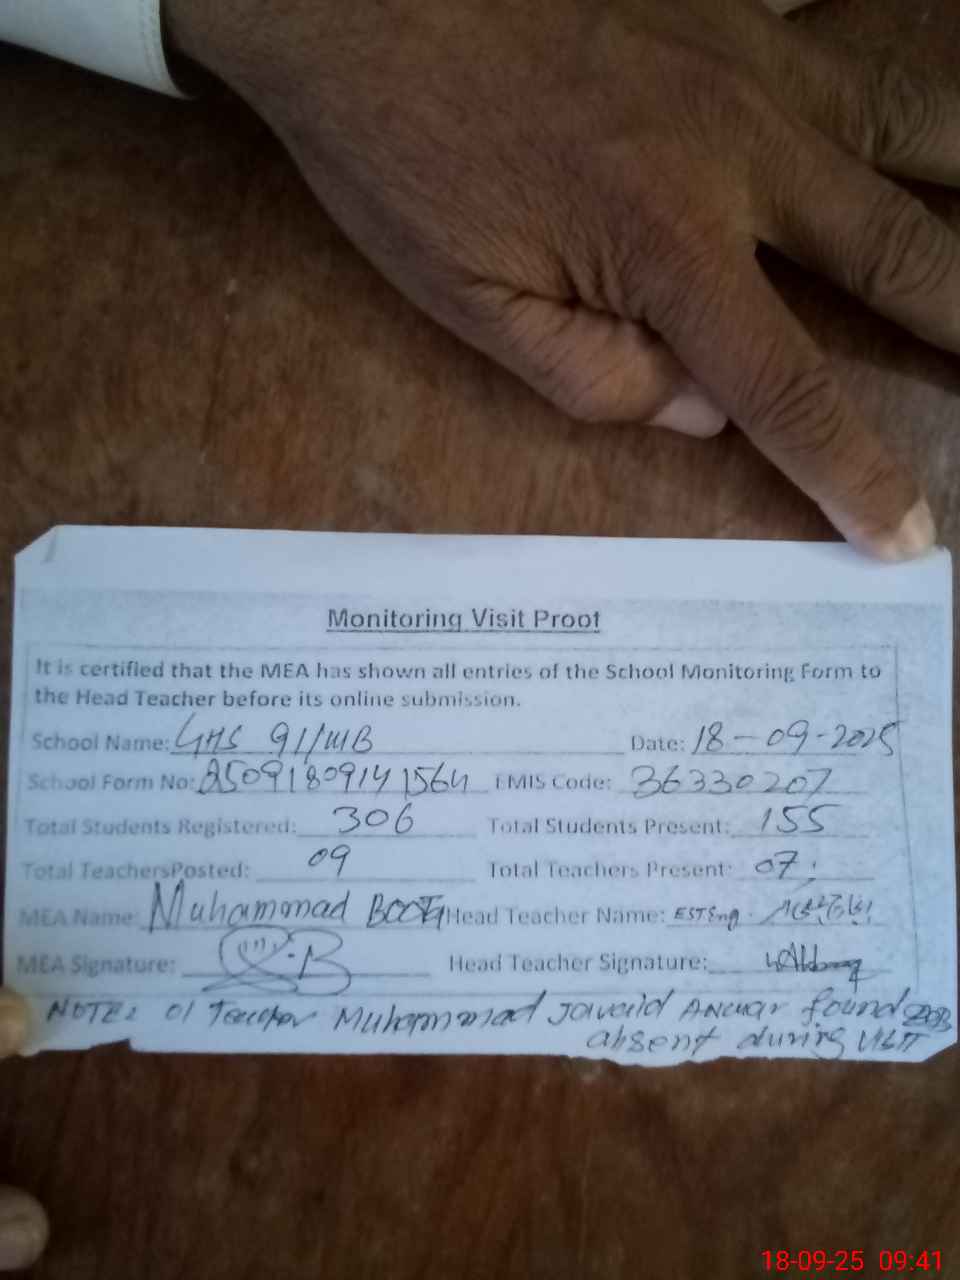 Monitoring Visit Proof
It is certified that the MEA has shown all entries of the School Monitoring Form to
the Head Teacher before its online submission.
School Name: GHS 91/MB Date: 18-09-2025
School Form No: 25091809141564 EMIS Code: 36330207
Total Students Registered: 306 Total Students Present: 155
Total TeachersPosted: 09 Total Teachers Present: 07
MEA Name: Muhammad BOOTA Head Teacher Name: EST Eng.
MEA Signature: Head Teacher Signature:
NOTE: 01 Teacher Muhammad Javaid Anwar found
absent during visit
18-09-25 09:41